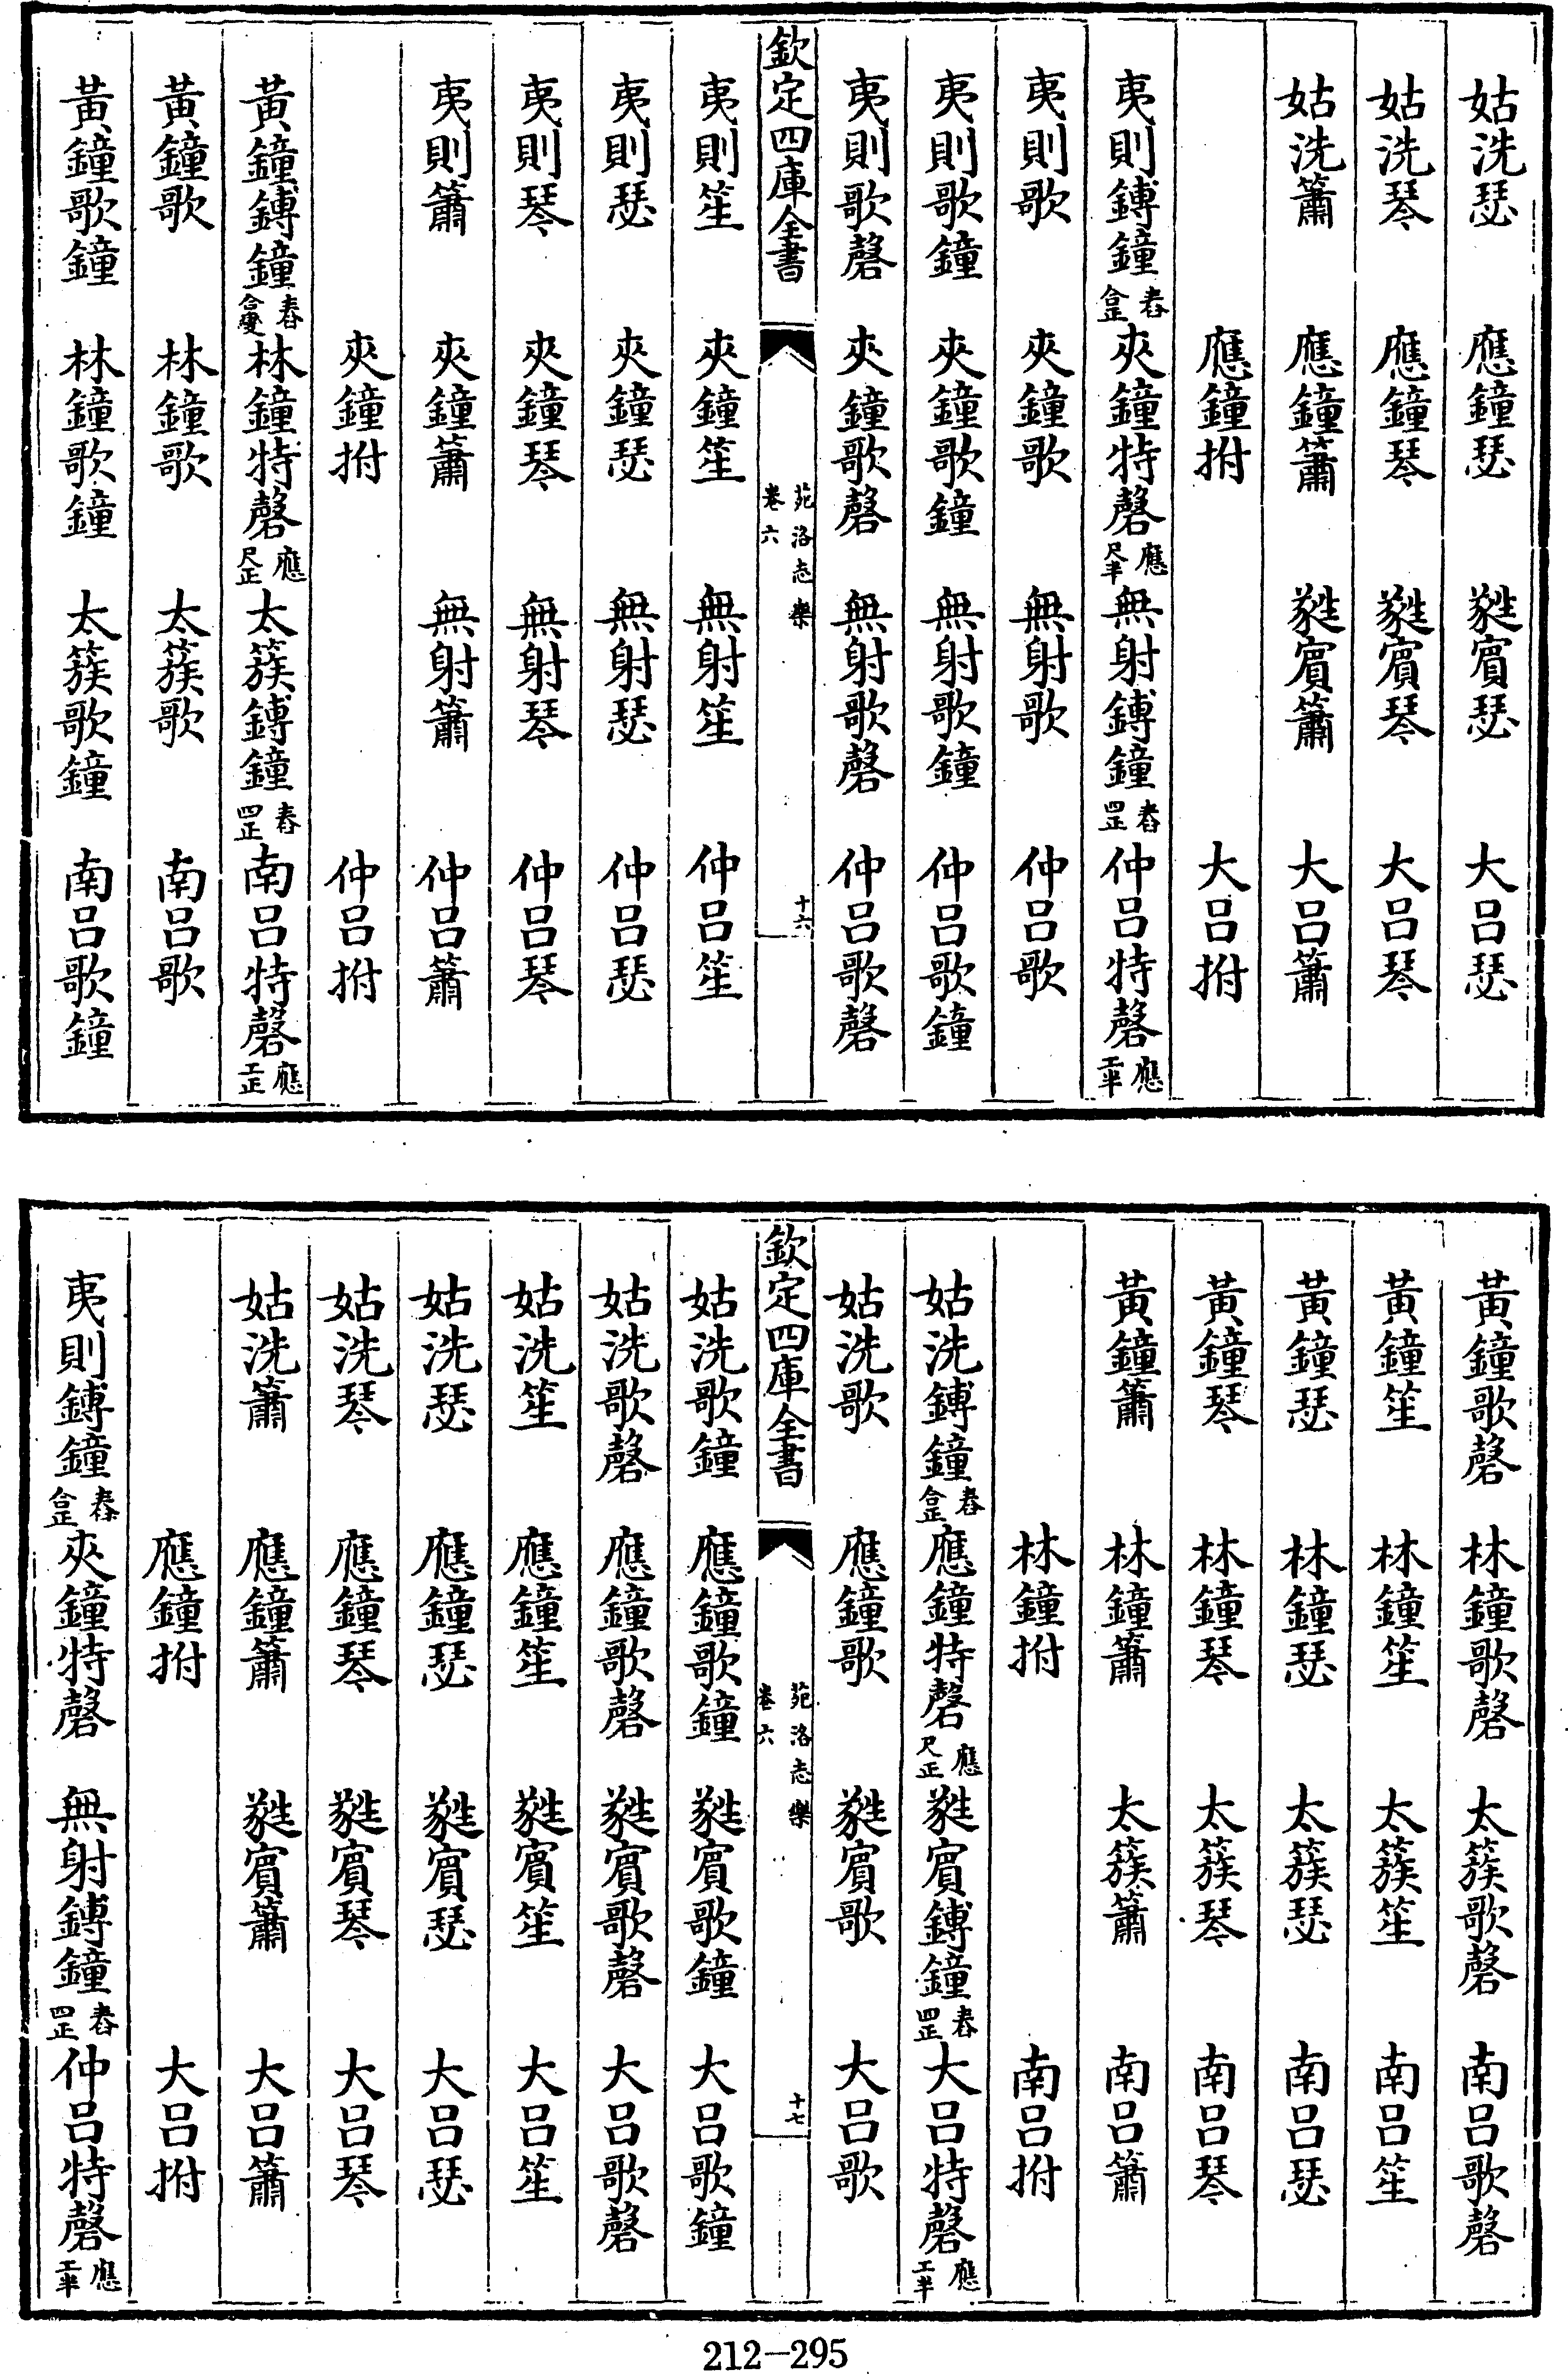 姑洗瑟　應鐘瑟　蕤賓瑟　大呂瑟
姑洗琴　應鐘琴　蕤賓琴　大呂琴
姑洗簫　應鐘簫　蕤賓簫　大呂簫
應鐘拊　大呂拊
夷則鎛鐘春合正夾鐘特磬應尺半無射鎛鐘春四正仲呂特磬應工半
夷則歌　夾鐘歌　無射歌　仲呂歌
夷則歌鐘　夾鐘歌鐘　無射歌鐘　仲呂歌鐘
夷則歌磬　夾鐘歌磬　無射歌磬　仲呂歌磬
欽定四庫全書　苑洛志樂　卷六　十六
夷則笙　夾鐘笙　無射笙　仲呂笙
夷則瑟　夾鐘瑟　無射瑟　仲呂瑟
夷則琴　夾鐘琴　無射琴　仲呂琴
夷則簫　夾鐘簫　無射簫　仲呂簫
夾鐘拊　仲呂拊
黃鐘鎛鐘春合變林鐘特磬應尺正太簇鎛鐘春四正南呂特磬應工正
黃鐘歌　林鐘歌　太簇歌　南呂歌
黃鐘歌鐘　林鐘歌鐘　太簇歌鐘　南呂歌鐘
黃鐘歌磬　林鐘歌磬　太簇歌磬　南呂歌磬
黃鐘笙　林鐘笙　太簇笙　南呂笙
黃鐘瑟　林鐘瑟　太簇瑟　南呂瑟
黃鐘琴　林鐘琴　太簇琴　南呂琴
黃鐘簫　林鐘簫　太簇簫　南呂簫
林鐘拊　南呂拊
姑洗鎛鐘春合正應鐘特磬應尺正蕤賓鎛鐘春四正大呂特磬應工半
姑洗歌　應鐘歌　蕤賓歌　大呂歌
欽定四庫全書　苑洛志樂　卷六　十七
姑洗歌鐘　應鐘歌鐘　蕤賓歌鐘　大呂歌鐘
姑洗歌磬　應鐘歌磬　蕤賓歌磬　大呂歌磬
姑洗笙　應鐘笙　蕤賓笙　大呂笙
姑洗瑟　應鐘瑟　蕤賓瑟　大呂瑟
姑洗琴　應鐘琴　蕤賓琴　大呂琴
姑洗簫　應鐘簫　蕤賓簫　大呂簫
應鐘拊　大呂拊
夷則鎛鐘春合正夾鐘特磬　無射鎛鐘春四正仲呂特磬應工半
212-295